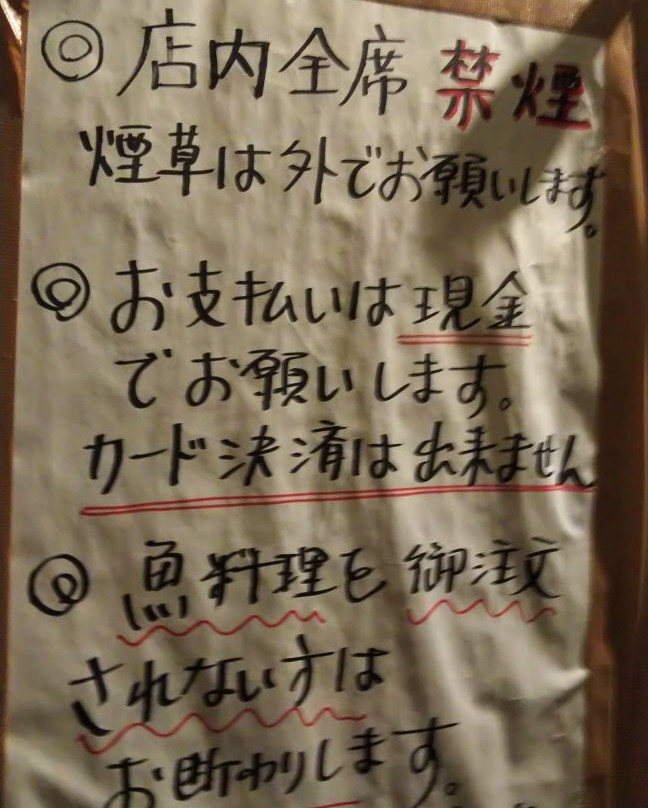 ◎店内全席禁煙
煙草は外でお願いします。
◎お支払いは現金
でお願いします。
カード決済は出来ません
◎魚料理を御注文
されない方は
お断わりします。